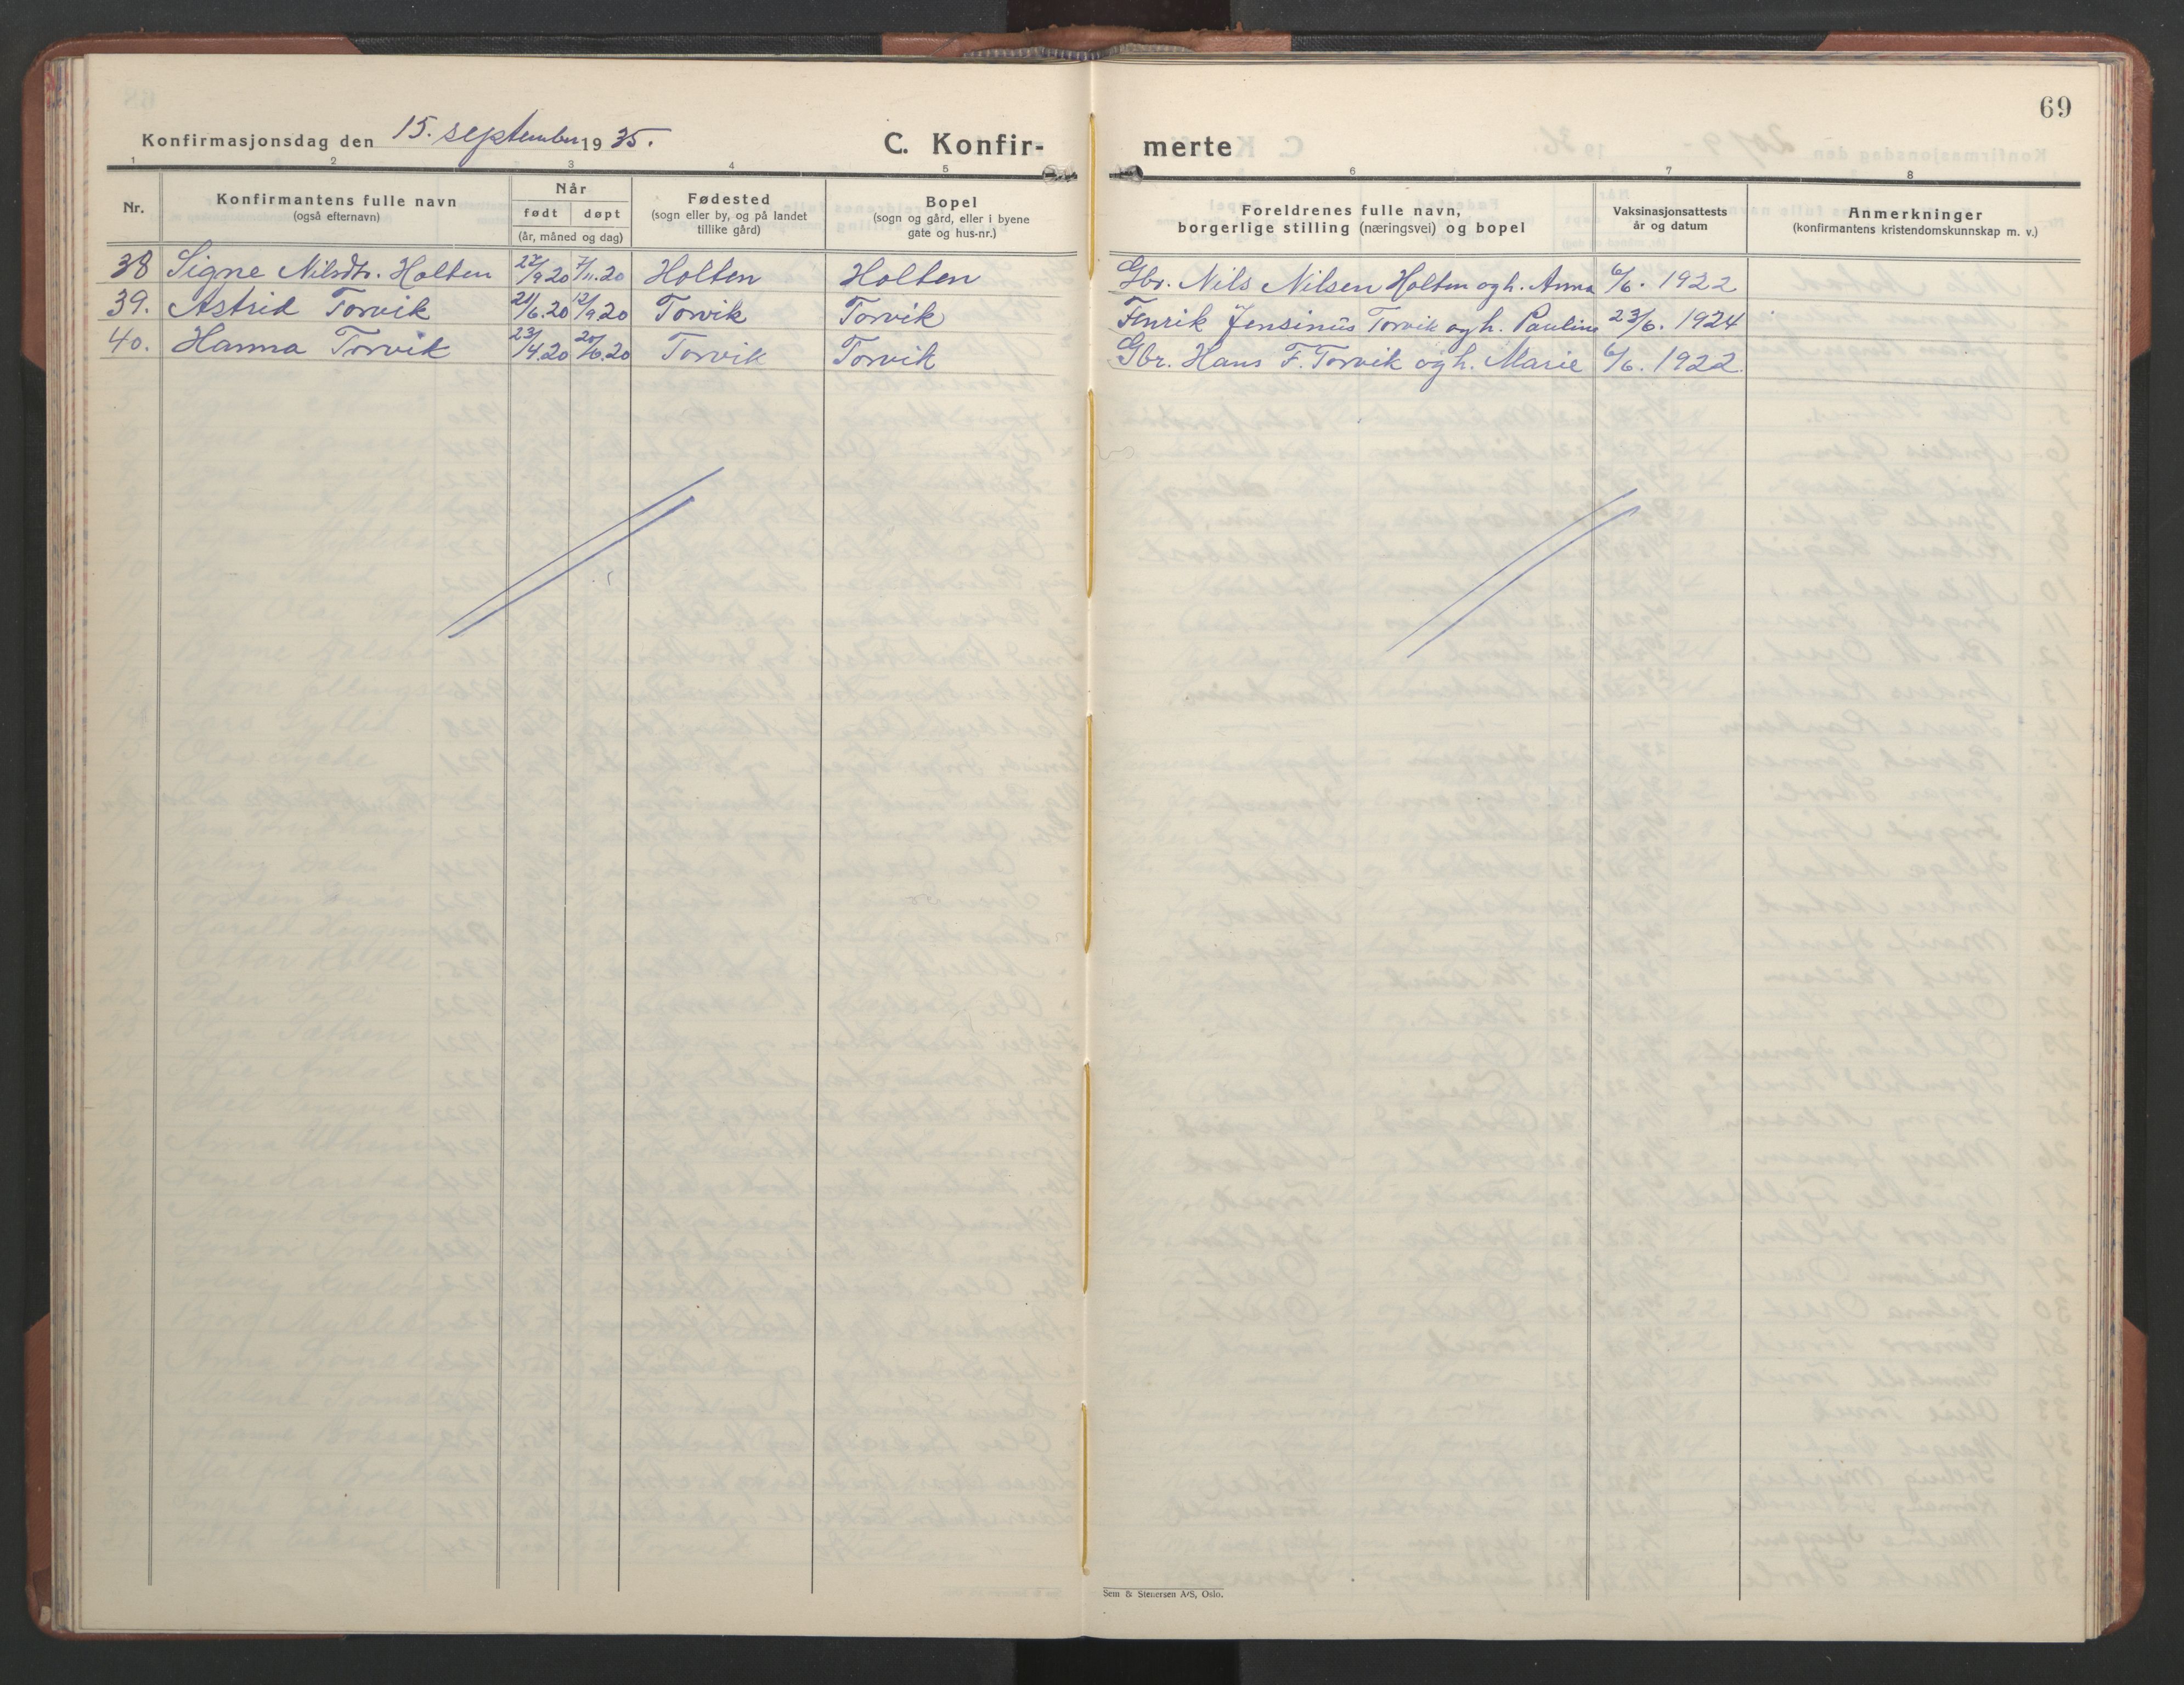 69
Konfirmasjonsdag den 15. september 1935.
C. Konfir- merte
1 2 3 4 5 6 7 8
Nr.
Konfirmantens fulle navn
(også efternavn)
Når
født døpt
(år, måned og dag)
Fødested
(sogn eller by, og på landet
tillike gård)
Bopel
(sogn og gård, eller i byene
gate og hus-nr.)
Foreldrenes fulle navn,
borgerlige stilling (næringsvei) og bopel
Vaksinasjonsattests
år og datum
Anmerkninger
(konfirmantens kristendomskunnskap m. v.)
38 Signe Nilsdtr. Holten 22/9 20 7/11.20 Holten Holten Gbr. Nils Nilsen Holten og h. Anna 6/6. 1922
39. Astrid Torvik 21/6.20 12/9 20 Torvik Torvik Fenrik Jensinus Torvik og h. Pauline 23/6. 1924
40. Hanna Torvik 23/4.20 20/6.20 Torvik Torvik Gbr. Hans F. Torvik og h. Marie 6/6. 1922.
Sem & Stenersen A/S, Oslo.